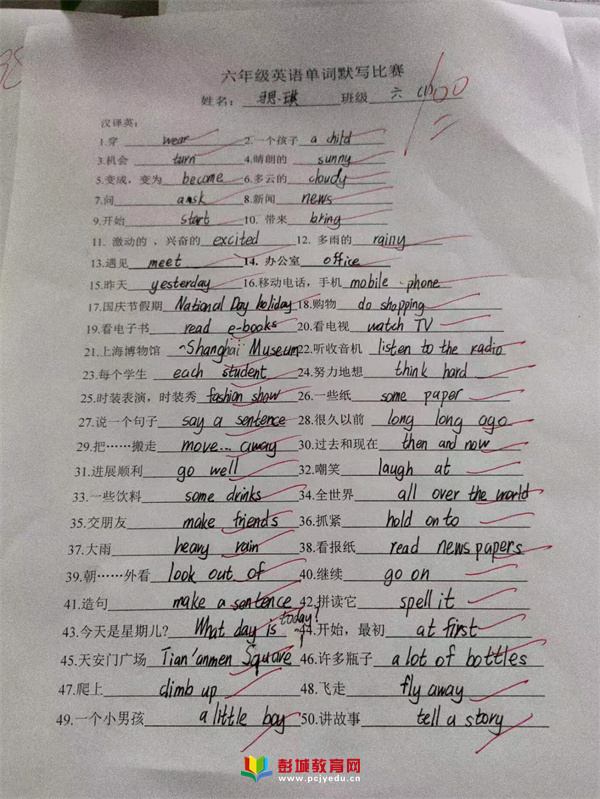 六年级英语单词默写比赛
姓名： 班级 六 (1) 100
汉译英：
1.穿 wear 2.一个孩子 a child
3.机会 turn 4.晴朗的 sunny
5.变成，变为 become 6.多云的 cloudy
7.问 ask 8.新闻 news
9.开始 start 10. 带来 bring
11. 激动的 、兴奋的 excited 12. 多雨的 rainy
13.遇见 meet 14. 办公室 office
15.昨天 yesterday 16.移动电话，手机 mobile phone
17.国庆节假期 National Day holiday 18.购物 do shopping
19.看电子书 read e-books 20.看电视 watch TV
21.上海博物馆 Shanghai Museum 22.听收音机 listen to the radio
23.每个学生 each student 24.努力地想 think hard
25.时装表演，时装秀 fashion show 26.一些纸 some paper
27.说一个句子 say a sentence 28.很久以前 long long ago
29.把……搬走 move... away 30.过去和现在 then and now
31.进展顺利 go well 32.嘲笑 laugh at
33.一些饮料 some drinks 34.全世界 all over the world
35.交朋友 make friends 36.抓紧 hold onto
37.大雨 heavy rain 38.看报纸 read newspapers
39.朝……外看 look out of 40.继续 go on
41.造句 make a sentence 42.拼读它 spell it
43.今天是星期几? What day is today? 44.开始，最初 at first
45.天安门广场 Tian'anmen Square 46.许多瓶子 a lot of bottles
47.爬上 climb up 48.飞走 fly away
49.一个小男孩 a little boy 50.讲故事 tell a story
彭城教育网
www.pcjyedu.cn